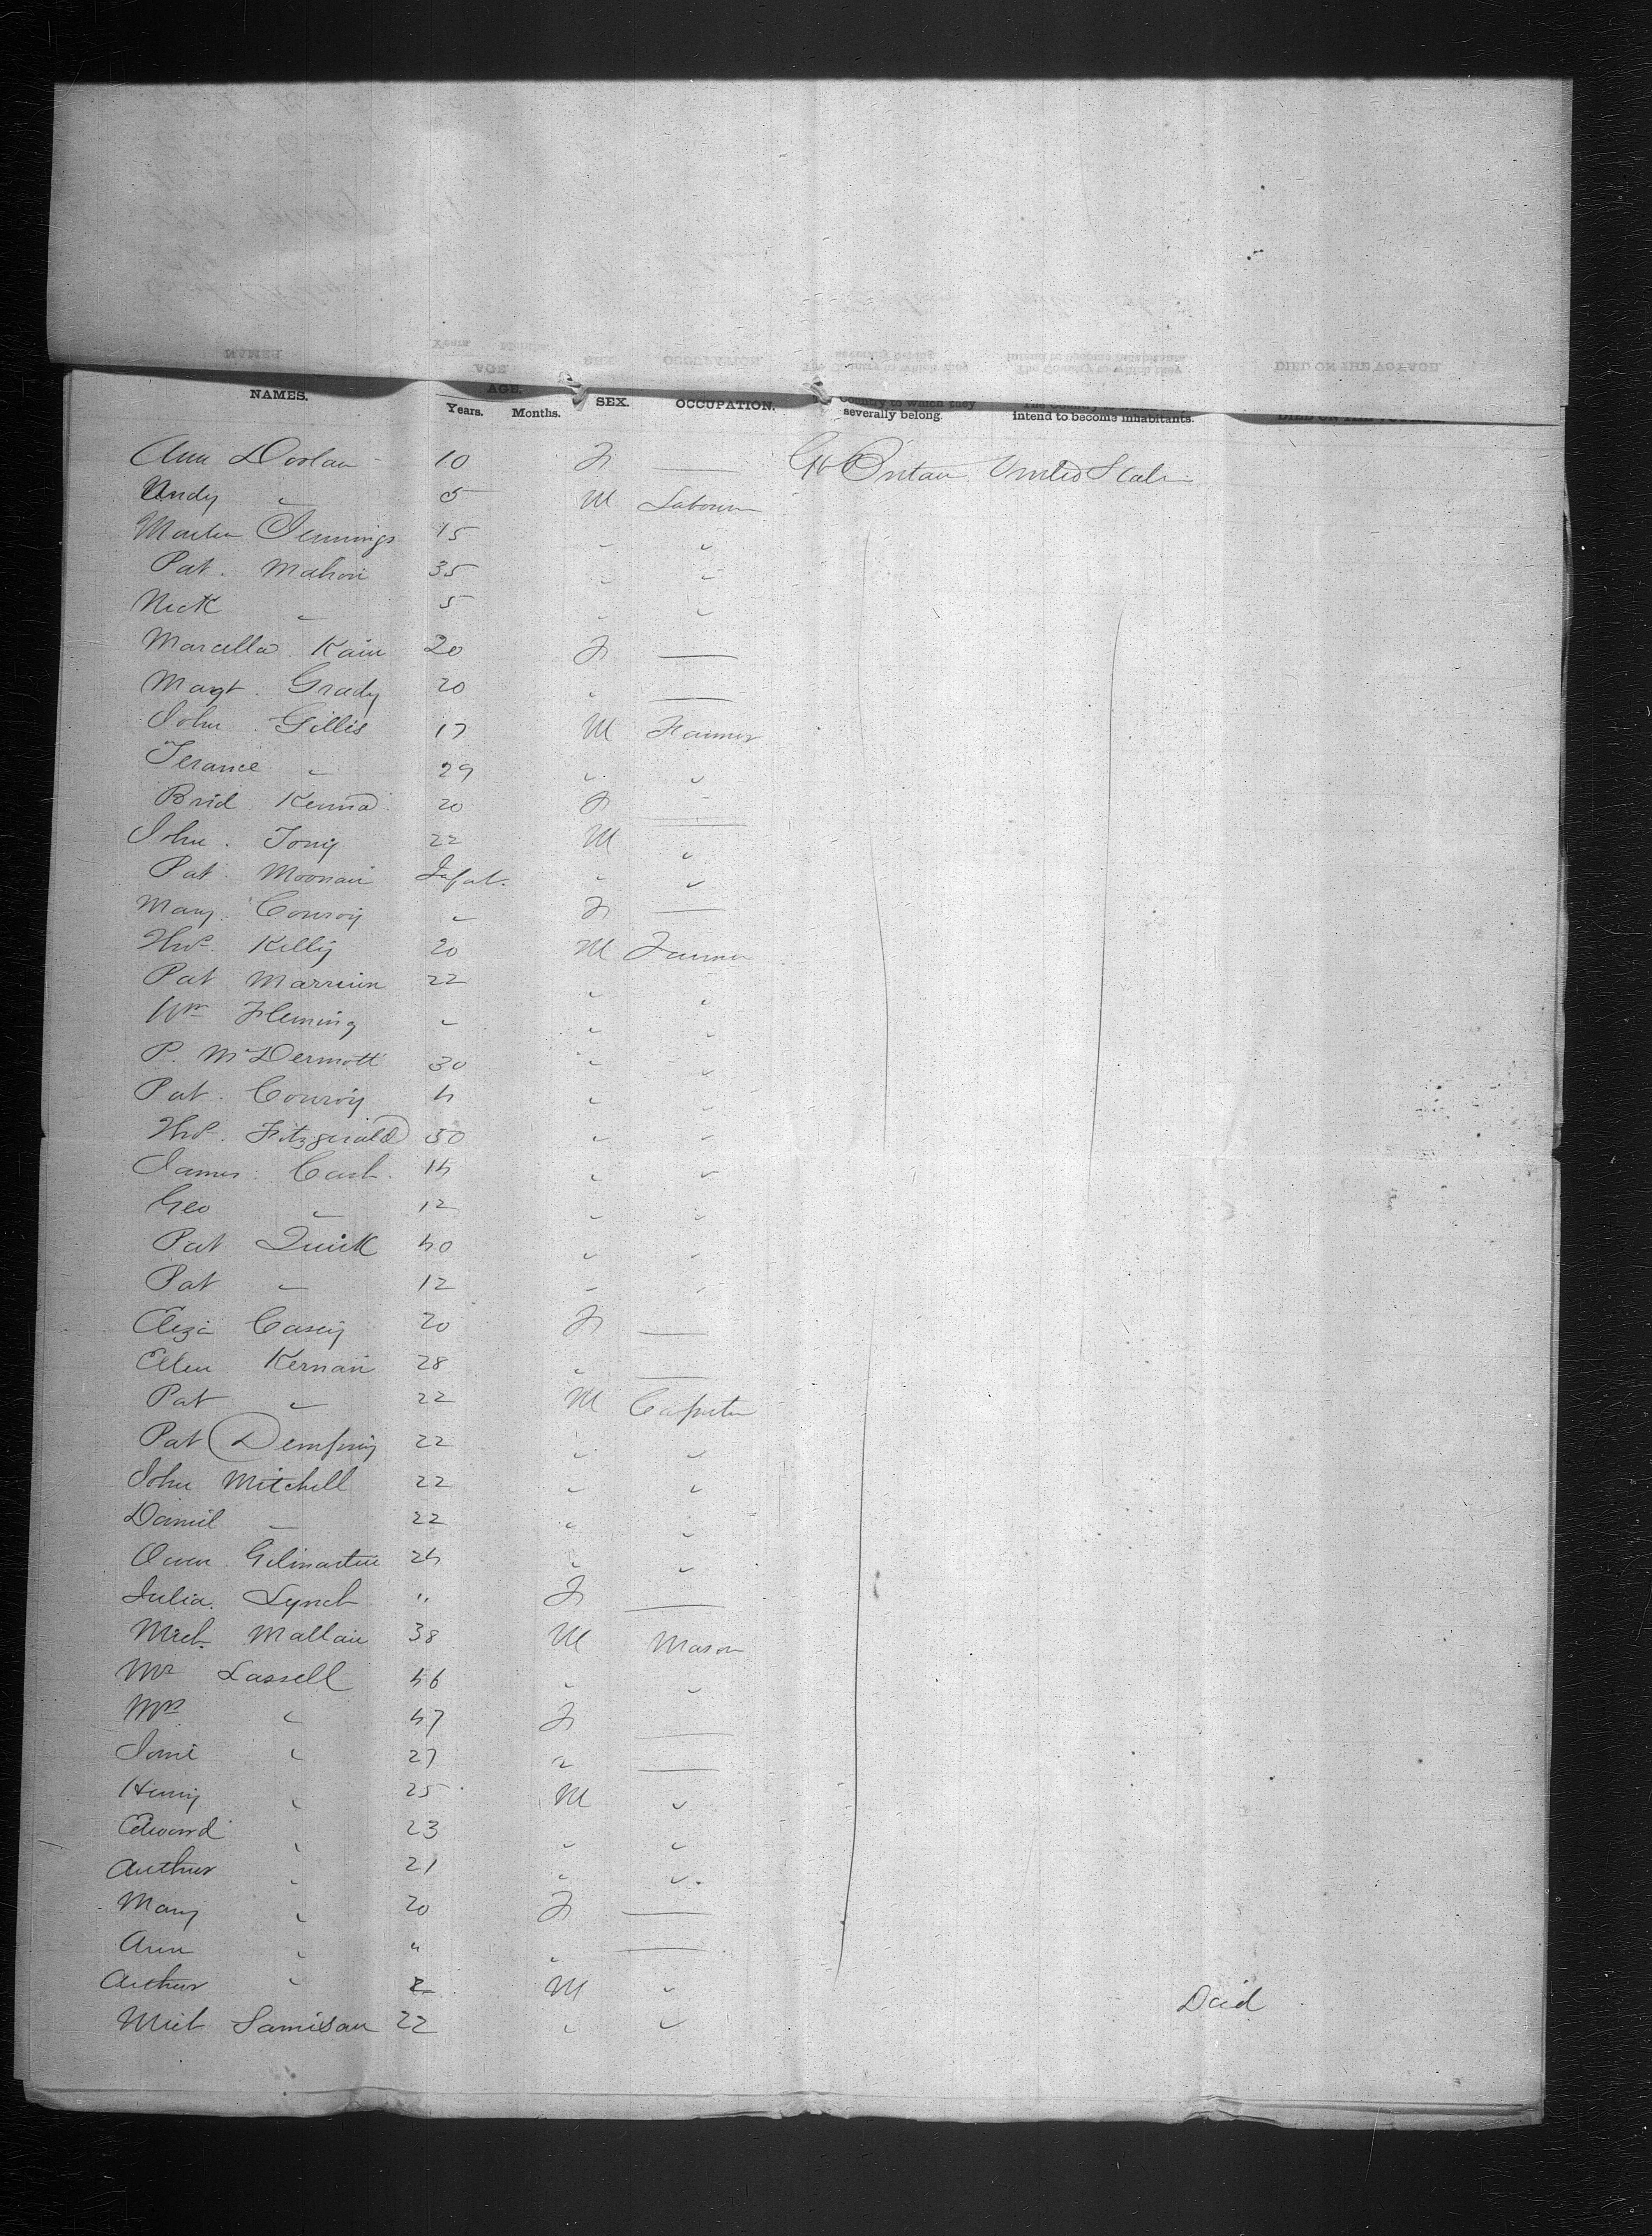 NAMES. AGE. Years. Months. SEX. OCCUPATION. Country to which they severally belong. The Country intend to become inhabitants. DIED ON THE VOYAGE
Ann Doolan 10 F — Gt Britain United States
Andy " 5 M Labourer
Martin Jennings 15 " "
Pat. Mahon 35 " "
Nick " 5 " "
Marcella Kain 20 F —
Margt. Grady 20 " —
John Gillis 17 M Farmer
Terance " 29 " "
Brid Kenna 20 F —
John. Tony 22 M "
Pat. Moonan Infat. " "
Mary Conroy " F —
Thos. Kelly 20 M Farmer
Pat 22 " "
Wm Fleming " " "
P. McDermott 30 " "
Pat. Conroy 4 " "
Thos. Fitzgerald 50 " "
James Cash. 14 " "
Geo " 12 " "
Pat Quirk 40 " "
Pat " 12 " "
Eliza Casey 20 F —
Ellen Kernan 28 " —
Pat " 22 M Capnter
Pat Dempsey 22 " "
John Mitchell 22 " "
Daniel " 22 " "
Owen Gilmartin 24 " "
Julia. Lynch " F —
Mich. Mallain 38 M Mason
Mr Lassell 46 " "
Mrs " 47 F —
" 27 " —
Henry " 25 M "
Edward " 23 " "
Arthur " 21 " "
Mary " 20 F —
Ann " " " —
Arthur " 2 M " Died
Mich 22 " "